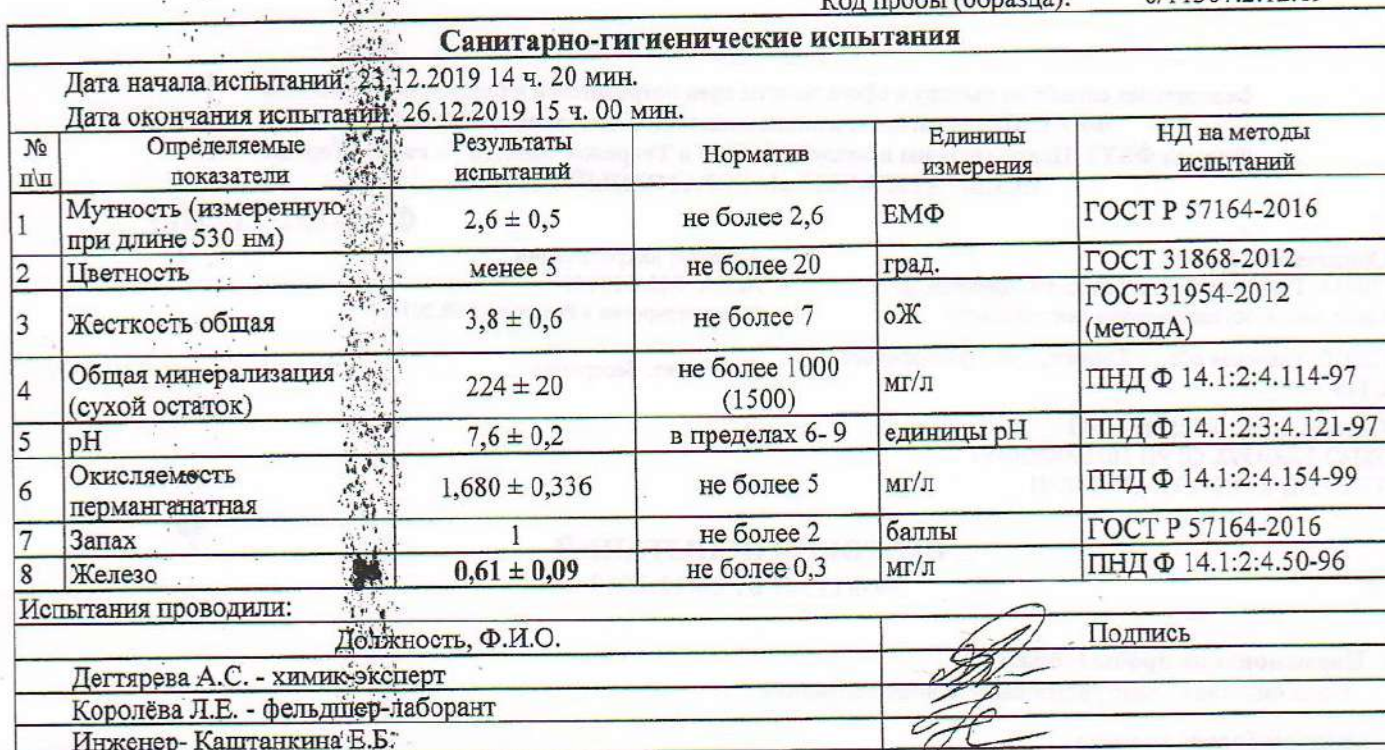 Код пробы (образца):
Санитарно-гигиенические испытания
Дата начала испытаний: 23.12.2019 14 ч. 20 мин.
Дата окончания испытаний: 26.12.2019 15 ч. 00 мин.
№ п\п Определяемые показатели Результаты испытаний Норматив Единицы измерения НД на методы испытаний
1 Мутность (измеренную при длине 530 нм) 2,6 ± 0,5 не более 2,6 ЕМФ ГОСТ Р 57164-2016
2 Цветность менее 5 не более 20 град. ГОСТ 31868-2012
3 Жесткость общая 3,8 ± 0,6 не более 7 оЖ ГОСТ31954-2012 (методА)
4 Общая минерализация (сухой остаток) 224 ± 20 не более 1000 (1500) мг/л ПНД Ф 14.1:2:4.114-97
5 рН 7,6 ± 0,2 в пределах 6- 9 единицы рН ПНД Ф 14.1:2:3:4.121-97
6 Окисляемость перманганатная 1,680 ± 0,336 не более 5 мг/л ПНД Ф 14.1:2:4.154-99
7 Запах 1 не более 2 баллы ГОСТ Р 57164-2016
8 Железо 0,61 ± 0,09 не более 0,3 мг/л ПНД Ф 14.1:2:4.50-96
Испытания проводили:
Должность, Ф.И.О. Подпись
Дегтярева А.С. - химик-эксперт
Королёва Л.Е. - фельдшер-лаборант
Инженер- Каштанкина Е.Б.